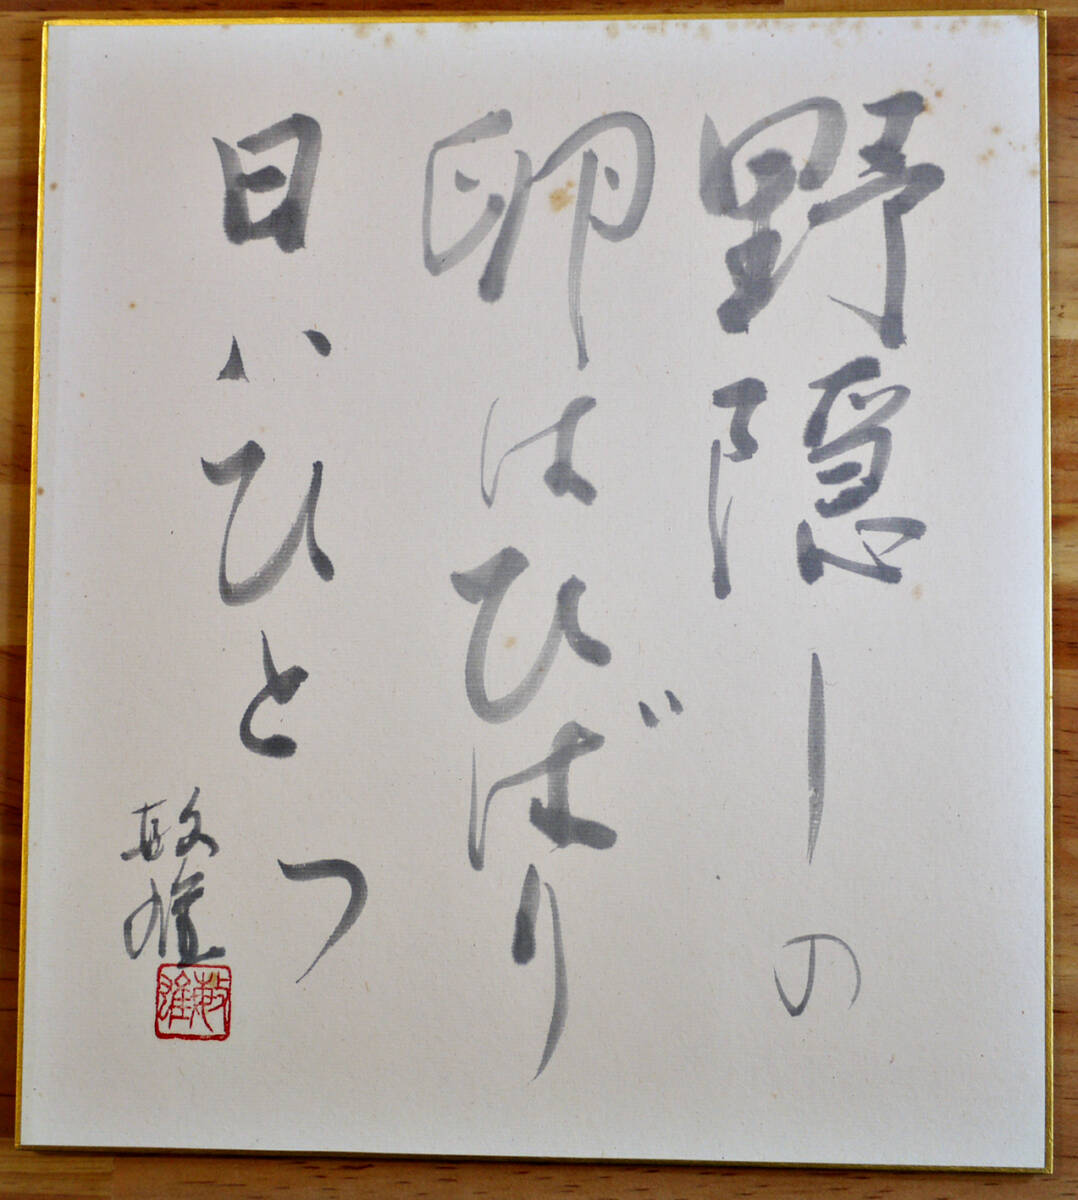 野隠しの
卵はひばり
日はひとつ
敏雄
敏雄